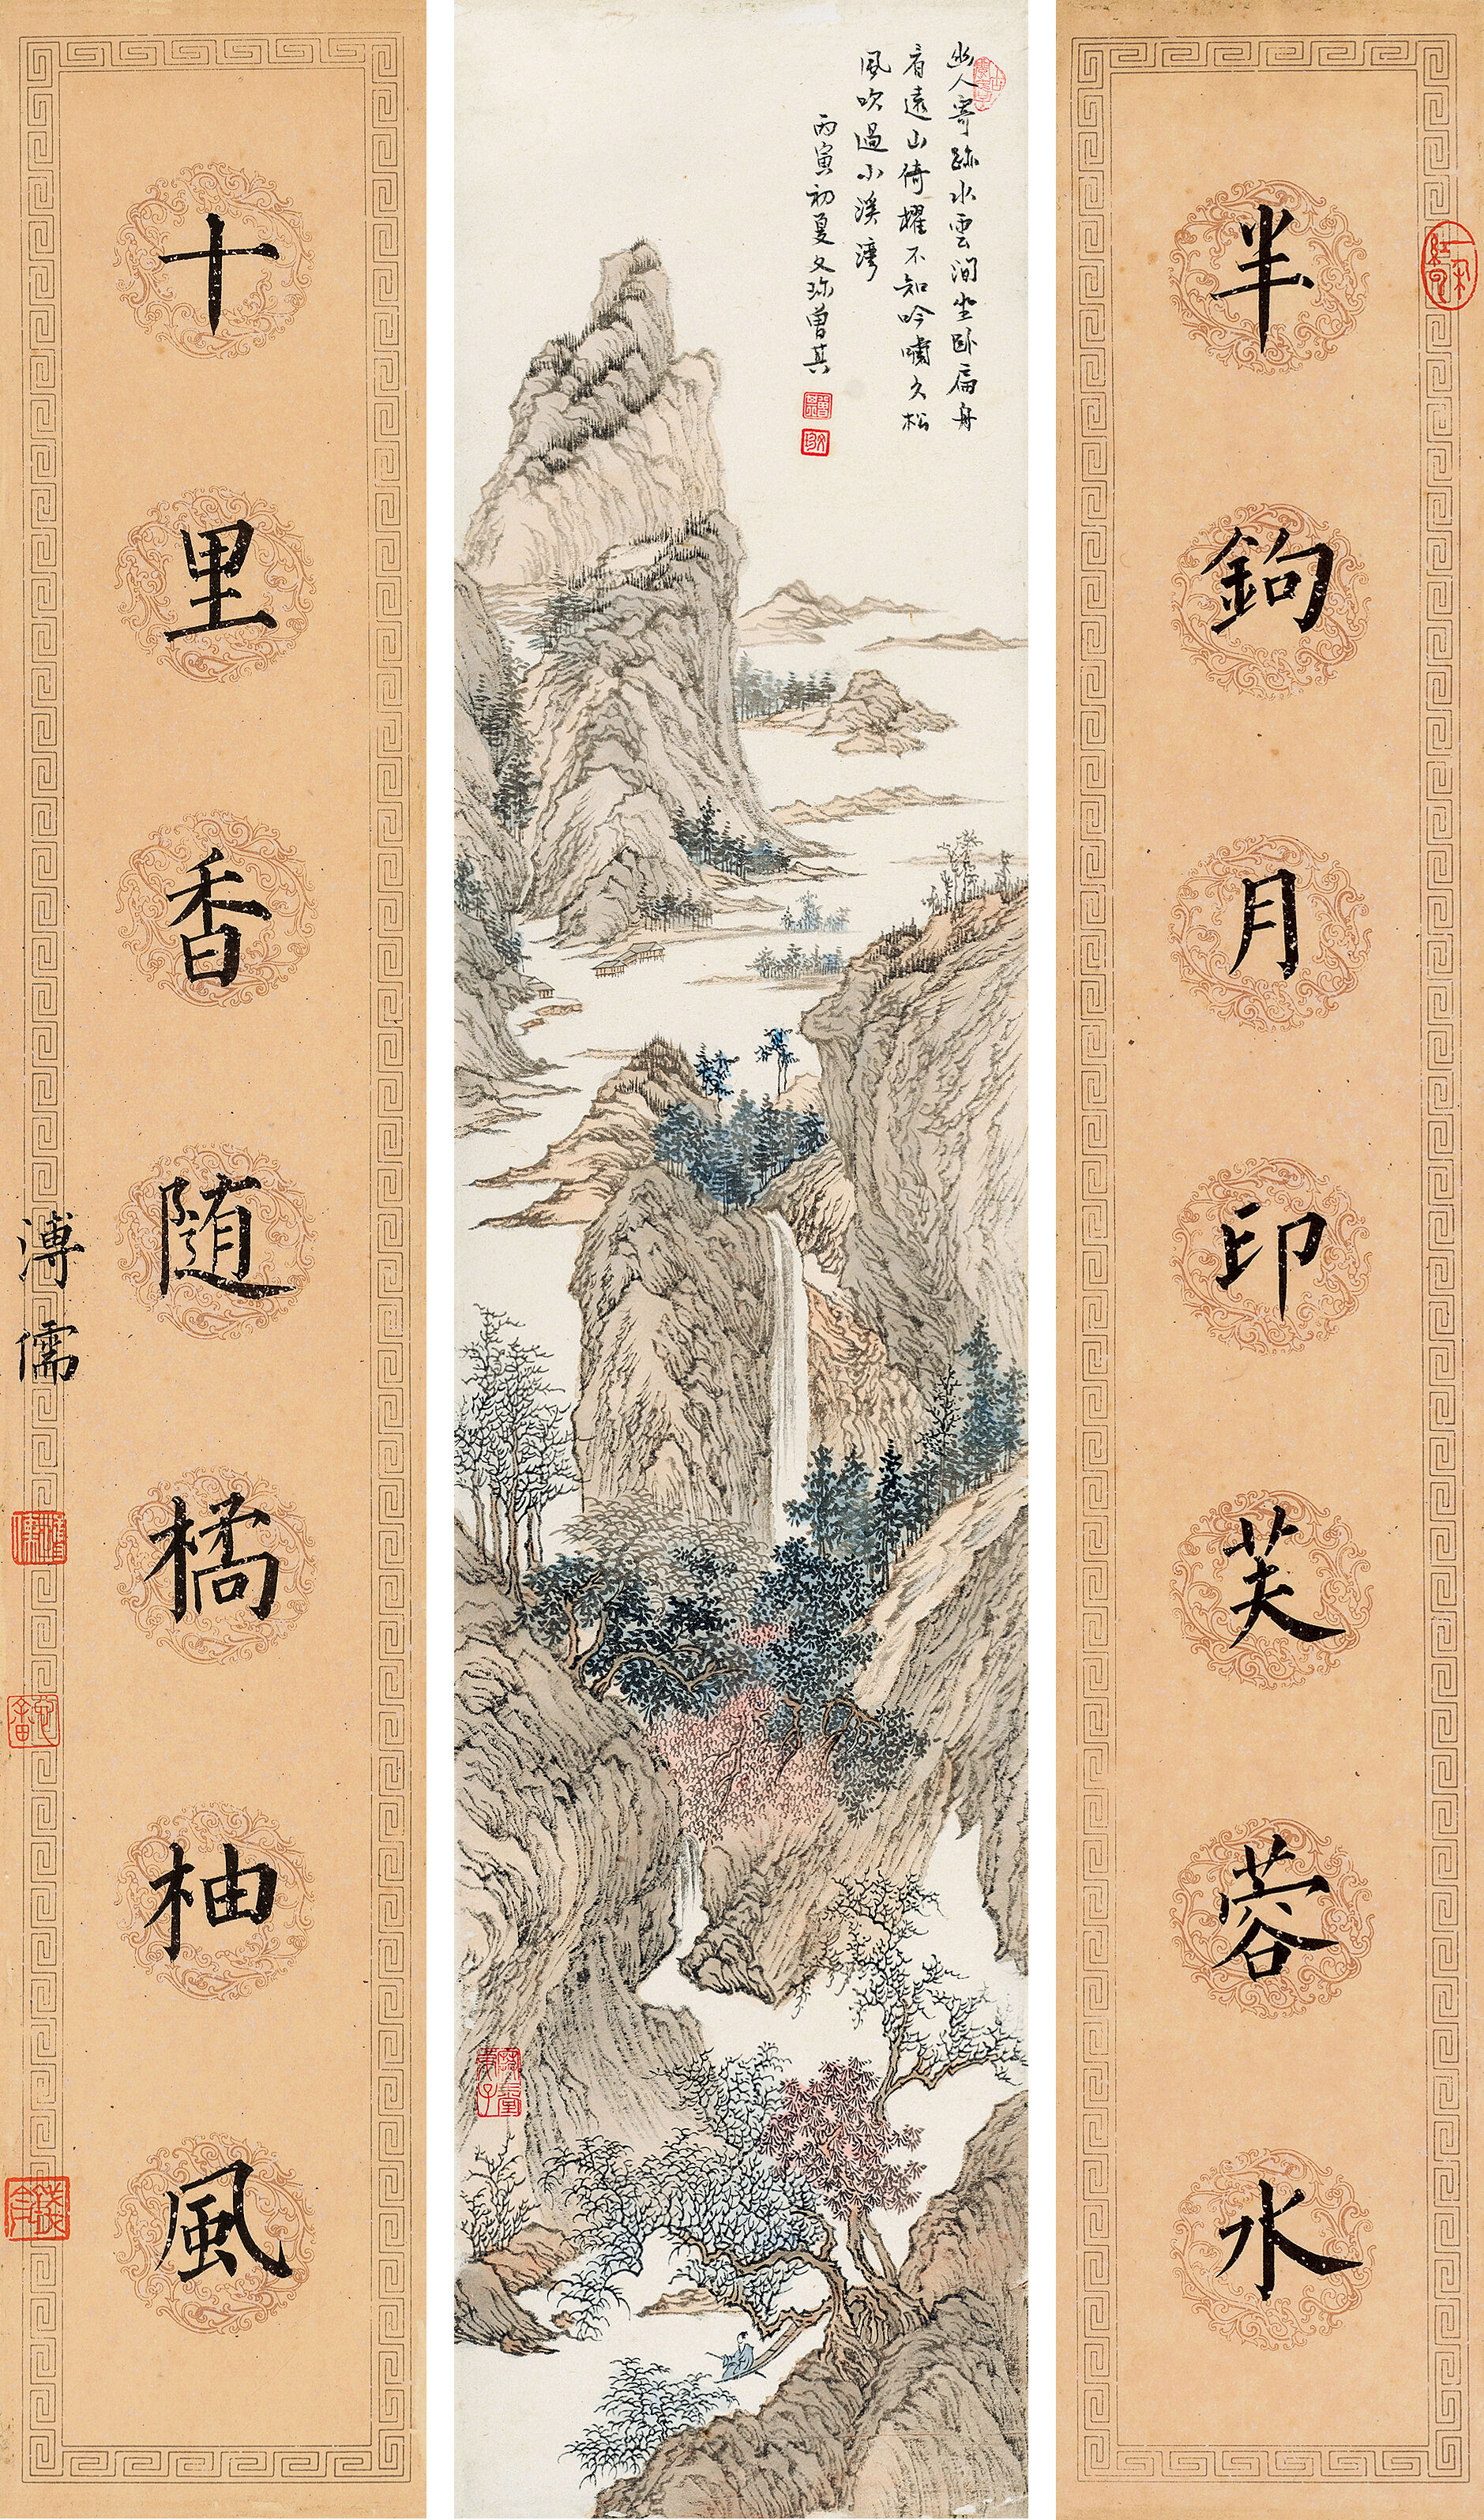 半鉤月印芙蓉水
幽人寄跡水雲間坐臥扁舟
看遠山倚櫂不知吟嘯久松
風吹過小溪灣
丙寅初夏文珍曾其
十里香随橘柚風
溥儒